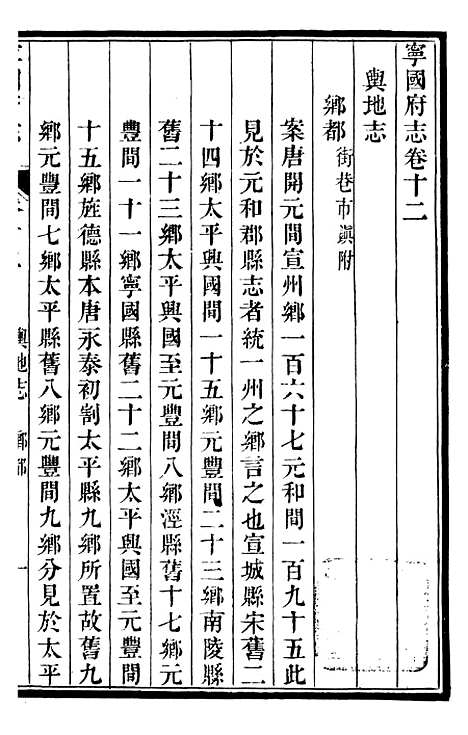 寧國府志卷十二
輿地志
鄉都街巷市鎭附
案唐開元間宣州鄉一百六十七元和間一百九十五此
見於元和郡縣志者統一州之鄉言之也宣城縣宋舊二
十四鄉太平興國間一十五鄉元豐間二十三鄉南陵縣
舊二十三鄉太平興國至元豐間八鄉涇縣舊十七鄉元
豐間一十一鄉寧國縣舊二十二鄉太平興國至元豐間
十五鄉旌德縣本唐永泰初割太平縣九鄉所置故舊九
鄉元豐間七鄉太平縣舊八鄉元豐間九鄉分見於太平
輿地志 鄉都 一